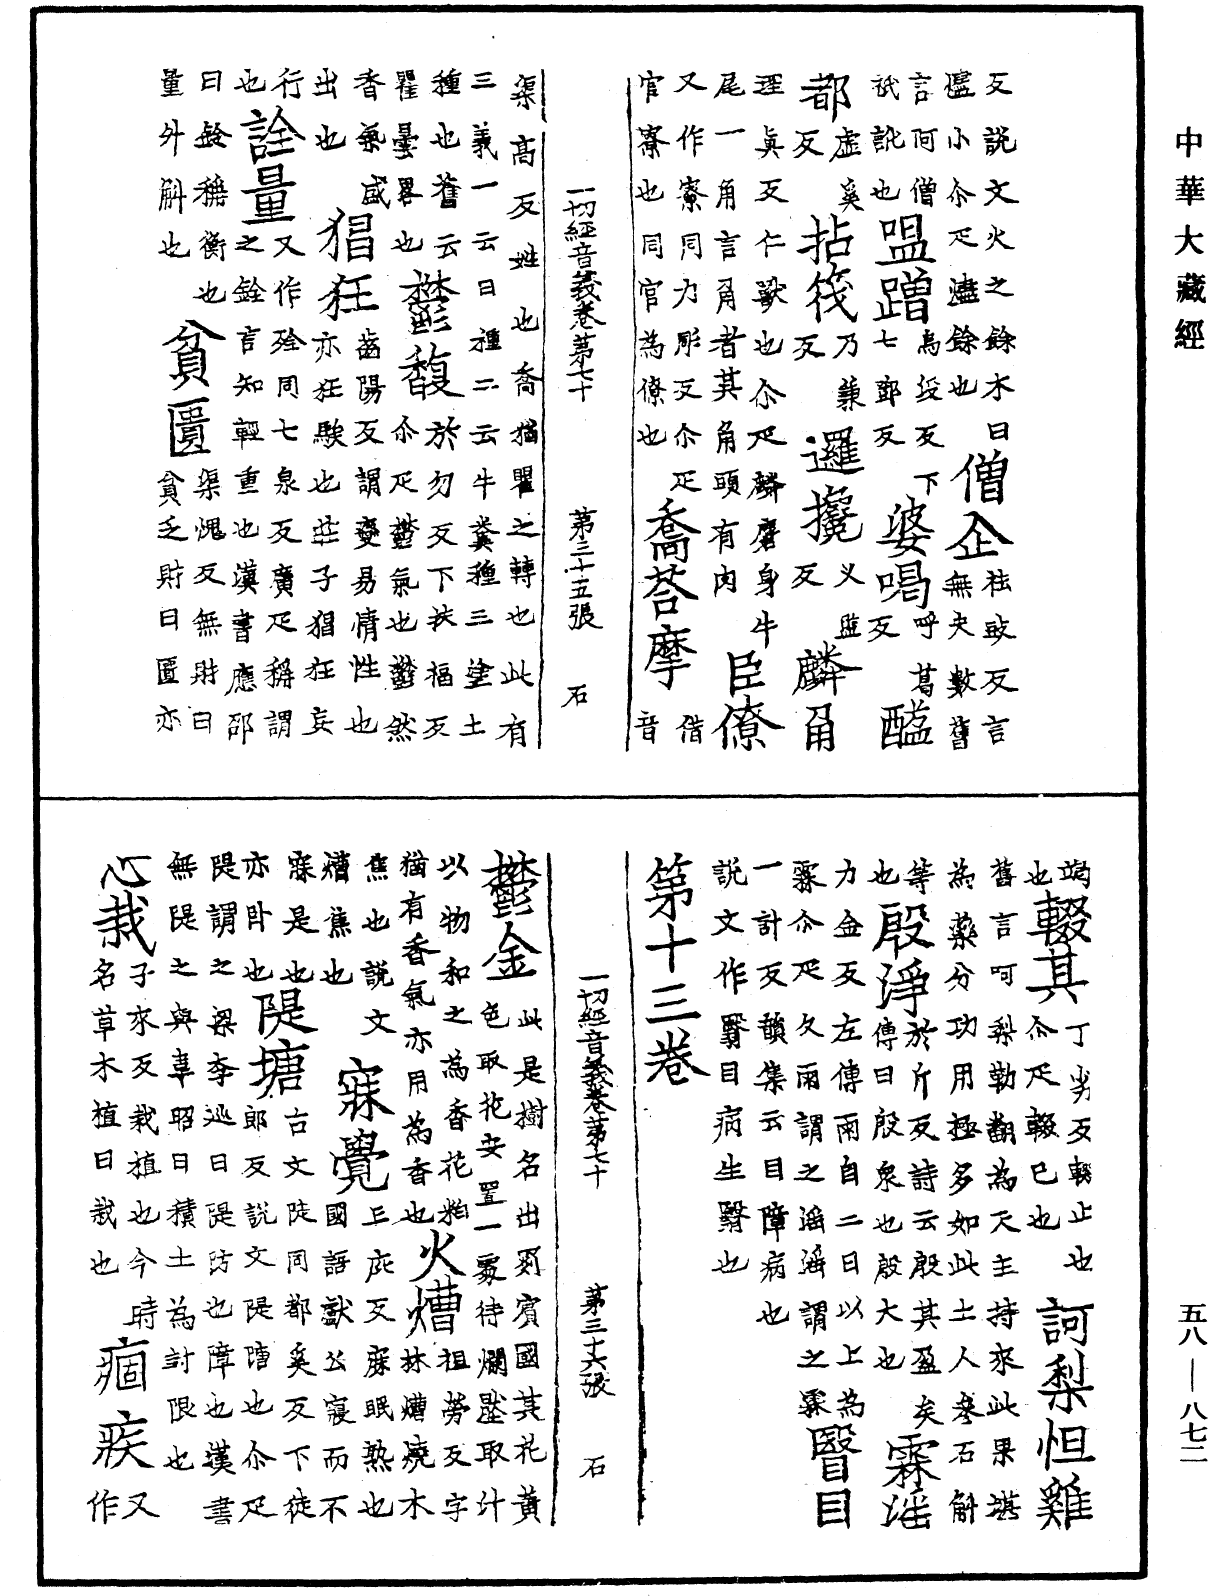 中華大藏經
反説文火之餘木曰
燼小尒疋燼餘也
僧企
祛豉反言
無央數舊
言阿僧
祇訛也
嗢蹭
烏没反下
七鄧反
婆喝
呼葛
反
醯
都
虚奚
反
拈筏
乃兼
反
邏攙
义監
反
麟角
理真反仁獸也尒疋麟麕身牛
尾一角言角者其角頭有肉
臣僚
又作寮同力彫反尒疋
官寮也同官為僚也
喬荅摩
借
音
一切經音義卷第七十 第三十五張 石
渠高反姓也喬猶瞿之轉也此有
三義一云日種二云牛糞種三塗土
種也舊云
瞿曇畧也
鬱馥
於勿反下扶福反
尒疋鬱氣也鬱然
香氣盛
出也
猖狂
齒陽反謂變易情性也
亦狂騃也莊子猖狂妄
行
也
詮量
又作硂同七泉反廣疋稱謂
之銓言知輕重也漢書應邵
曰銓稱衡也
量外斛也
貧匱
渠愧反無財曰
貧乏財曰匱亦
竭
也
輟其
丁劣反輟止也
尒疋輟已也
訶梨怛雞
舊言呵梨勒翻為天主持來此果堪
為藥分功用極多如此土人參石斛
等
也
殷淨
於斤反詩云殷其盈矣
傳曰殷衆也殷大也
霖滛
力金反左傳雨自二日以上為
霖尒疋久雨謂之滛滛謂之霖
瞖目
一計反韻集云目障病也
説文作瞖目病生瞖也
第十三卷
一切經音義卷第七十 第三十六張 石
鬱金
此是樹名出罽賓國其花黄
色取花安置一處待爛壓取汁
以物和之為香花粕
猶有香氣亦用為香也
火熸
祖勞反字
林熸燒木
焦也説文
熸焦也
寐覺
亡庇反寐眠熟也
國語獻公寢而不
寐是也
亦卧也
隄塘
古文陡同都奚反下徒
郎反説文隄塘也尒疋
隄謂之梁李巡曰隄防也障也漢書
無隄之與韋昭曰積土為討限也
心栽
子來反栽植也今時
名草木植曰栽也
痼疾
又
作
五八—八七二